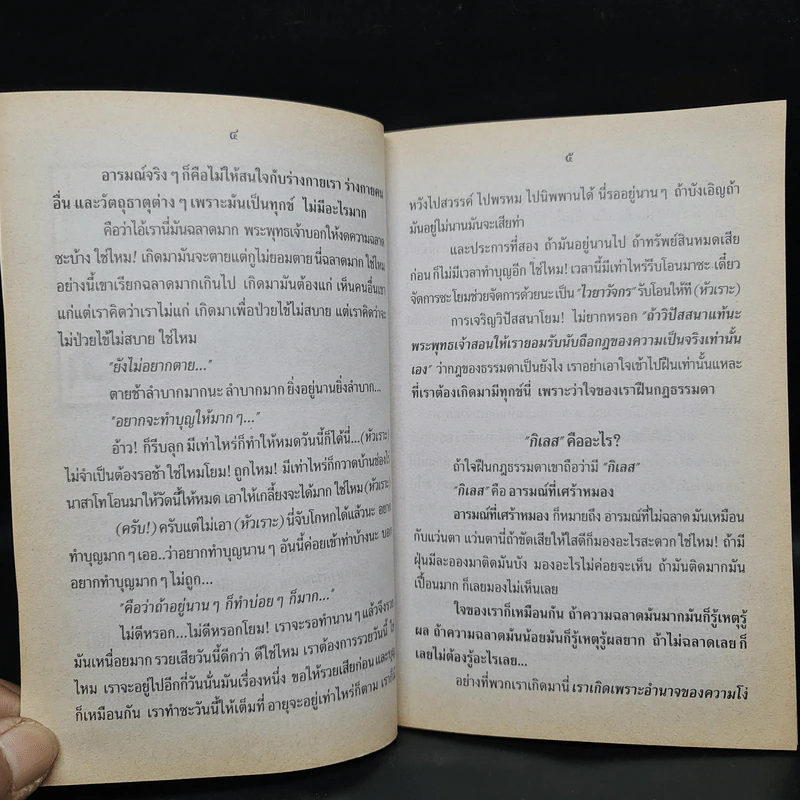 ๔
อารมณ์จริง ๆ ก็คือไม่ให้สนใจกับร่างกายเรา ร่างกายคน
อื่น และวัตถุธาตุต่าง ๆ เพราะมันเป็นทุกข์ ไม่มีอะไรมาก
คือว่าไอ้เรานี่มันฉลาดมาก พระพุทธเจ้าบอกให้งดความฉลาด
ซะบ้าง ใช่ไหม! เกิดมามันจะตายแต่กูไม่ยอมตาย นี่ฉลาดมาก ใช่ไหม
อย่างนี้เขาเรียกฉลาดมากเกินไป เกิดมามันต้องแก่ เห็นคนอื่นเขา
แก่แต่เราคิดว่าเราไม่แก่ เกิดมาเพื่อป่วยไข้ไม่สบาย แต่เราคิดว่าจะ
ไม่ป่วยไข้ไม่สบาย ใช่ไหม
"ยังไม่อยากตาย..."
ตายช้าลำบากมากนะ ลำบากมาก ยิ่งอยู่นานยิ่งลำบาก...
"อยากจะทำบุญให้มาก ๆ..."
อ้าว! ก็รีบลุก มีเท่าไหร่ก็ทำให้หมดวันนี้ก็ได้นี่...(หัวเราะ)
ไม่จำเป็นต้องรอช้า ใช่ไหมโยม! ถูกไหม! มีเท่าไหร่ก็กวาดบ้านช่อง
นาสาโทโอนมาให้วัดนี้ให้หมด เอาให้เกลี้ยงจะได้มาก ใช่ไหม (หัวเราะ)
(ครับ!) ครับแต่ไม่เอา (หัวเราะ) นี่จับโกหกได้แล้วนะ อยาก
ทำบุญมาก ๆ เออ..ว่าอยากทำบุญนาน ๆ อันนี้ค่อยเข้าท่าบ้างนะ บอก
อยากทำบุญมาก ๆ ไม่ถูก...
"คือว่าถ้าอยู่นาน ๆ ก็ทำบ่อย ๆ ก็มาก..."
ไม่ดีหรอก...ไม่ดีหรอกโยม! เราจะรอทำนาน ๆ แล้วจึงรวย
มันเหนื่อยมาก รวยเสียวันนี้ดีกว่า ดีใช่ไหม เราต้องการรวยวันนี้
ไหม เราจะอยู่ไปอีกกี่วันนั่นมันเรื่องหนึ่ง ขอให้รวยเสียก่อน และบุญ
ก็เหมือนกัน เราทำซะวันนี้ให้เต็มที่ อายุจะอยู่เท่าไหร่ก็ตาม
๕
หวังไปสวรรค์ ไปพรหม ไปนิพพานได้ นี่รออยู่นาน ๆ ถ้าบังเอิญถ้า
มันอยู่ไม่นานมันจะเสียท่า
และประการที่สอง ถ้ามันอยู่นานไป ถ้าทรัพย์สินหมดเสีย
ก่อน ก็ไม่มีเวลาทำบุญอีก ใช่ไหม! เวลานี้มีเท่าไหร่รีบโอนมาซะ เดี๋ยว
จัดการซะโยมช่วยจัดการด้วยนะ เป็น "ไวยาวัจกร" รับโอนให้ที (หัวเราะ)
การเจริญวิปัสสนาโยม! ไม่ยากหรอก "ถ้าวิปัสสนาแท้นะ
พระพุทธเจ้าสอนให้เรายอมรับนับถือกฎของความเป็นจริงเท่านั้น
เอง" ว่ากฎของธรรมดาเป็นยังไง เราอย่าเอาใจเข้าไปฝืนเท่านั้นแหละ
ที่เราต้องเกิดมามีทุกข์นี่ เพราะว่าใจของเราฝืนกฎธรรมดา
"กิเลส" คืออะไร?
ถ้าใจฝืนกฎธรรมดาเขาถือว่ามี "กิเลส"
"กิเลส" คือ อารมณ์ที่เศร้าหมอง
อารมณ์ที่เศร้าหมอง ก็หมายถึง อารมณ์ที่ไม่ฉลาด มันเหมือน
กับแว่นตา แว่นตานี่ถ้าขัดเสียให้ใสดีก็มองอะไรสะดวก ใช่ไหม! ถ้ามี
ฝุ่นมีละอองมาติดมันบัง มองอะไรไม่ค่อยจะเห็น ถ้ามันติดมากมัน
เปื้อนมาก ก็เลยมองไม่เห็นเลย
ใจของเราก็เหมือนกัน ถ้าความฉลาดมันมากมันก็รู้เหตุรู้
ผล ถ้าความฉลาดมันน้อยมันก็รู้เหตุรู้ผลยาก ถ้าไม่ฉลาดเลย ก็
เลยไม่ต้องรู้อะไรเลย...
อย่างที่พวกเราเกิดมานี่ เราเกิดเพราะอำนาจของความโง่